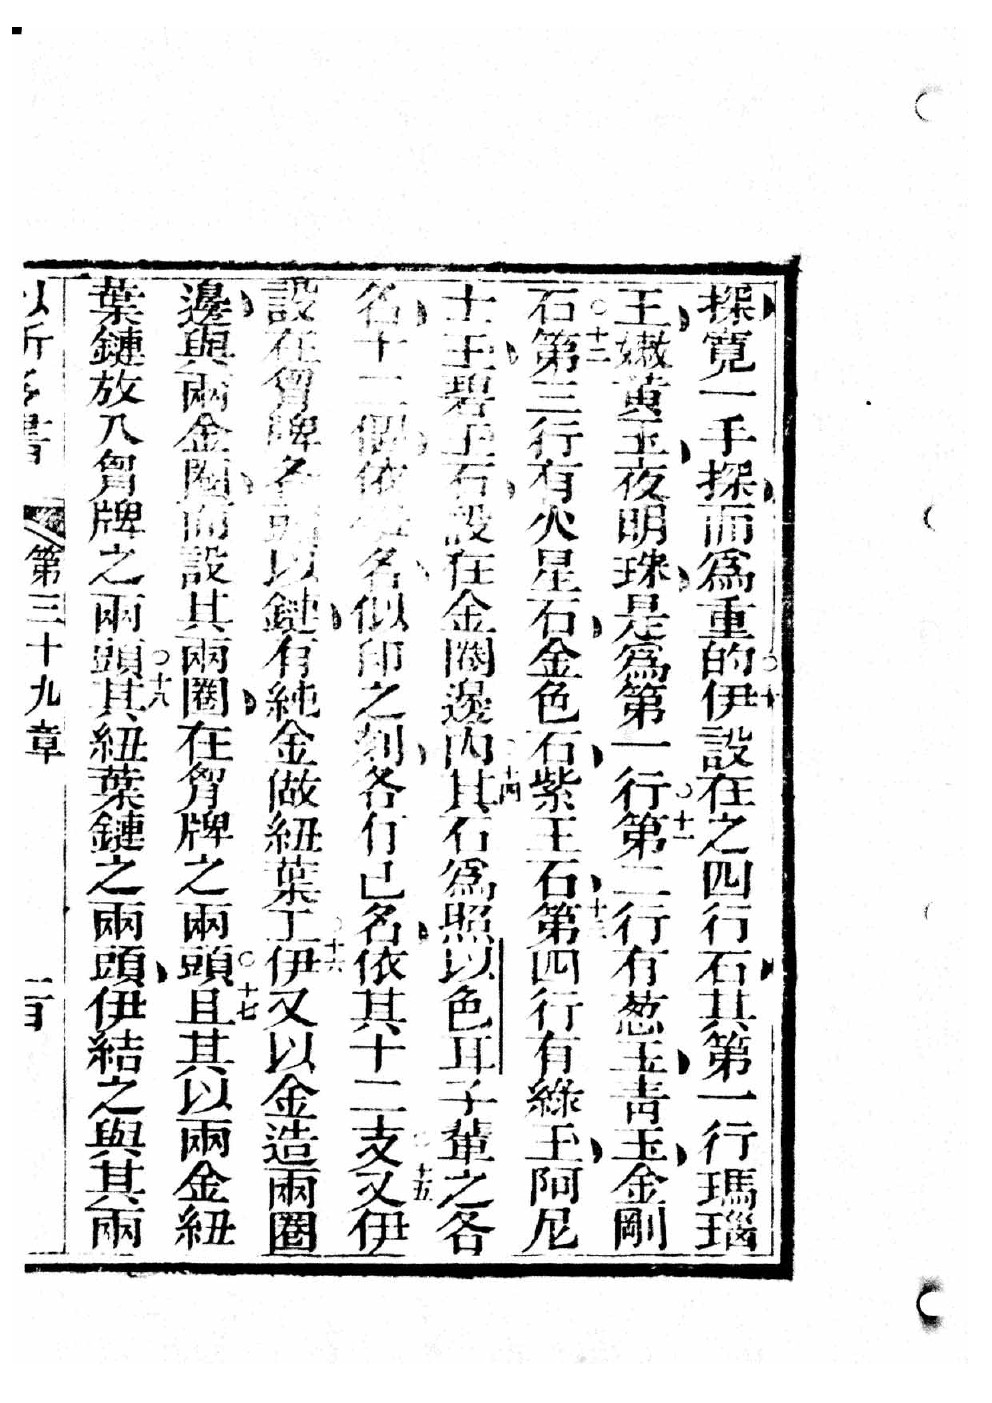 探寬一手探而爲重的○十伊設在之四行石其第一行瑪瑙
王嫩黃玉夜明珠是爲第一行○十一第二行有葱玉青玉金剛
石○十二第三行有火星石金色石紫玉石○十三第四行有綠玉阿尼
士玉碧玉石設在金闗邊內○十四其石爲照以色耳子輩之各
名十二個依名似印之刻各有己名依其十二支○十五又伊
設在胷牌各頭以鏈有純金做紐葉工○十六伊又以金造兩圈
邊與兩金闗而設其兩圈在胷牌之兩頭○十七且其以兩金紐
葉鏈放入胷牌之兩頭○十八其紐葉鏈之兩頭伊結之與其兩
第三十九章